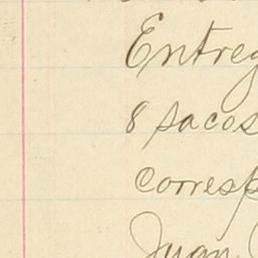 Entreg
8 sacos
corresp
Juan